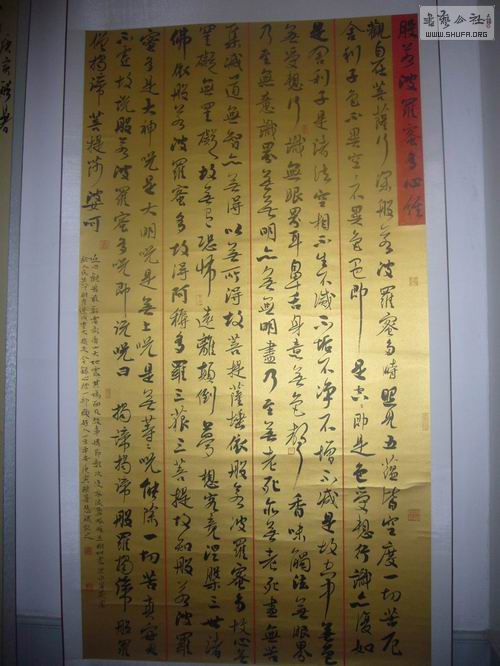 書藝公社
WWW.SHUFA.ORG
般若波羅蜜多心經
觀自在菩薩行深般若波羅蜜多時照見五蘊皆空度一切苦厄
舍利子色不異空空不異色色即是空空即是色受想行識亦復如
是舍利子是諸法空相不生不滅不垢不淨不增不減是故空中無色
無受想行識無眼界耳鼻舌身意無色聲香味觸法無眼界
乃至無意識界無無明亦無無明盡乃至無老死亦無老死盡無苦
集滅道無智亦無得以無所得故菩提薩埵依般若波羅蜜多故心無
罣礙無罣礙故無有恐怖遠離顛倒夢想究竟涅槃三世諸
佛依般若波羅蜜多故得阿耨多羅三藐三菩提故知般若波羅
蜜多是大神咒是大明咒是無上咒是無等咒能除一切苦真實
不虛故說般若波羅蜜多咒即說咒曰揭諦揭諦般羅揭諦般羅
僧揭諦菩提莎婆呵